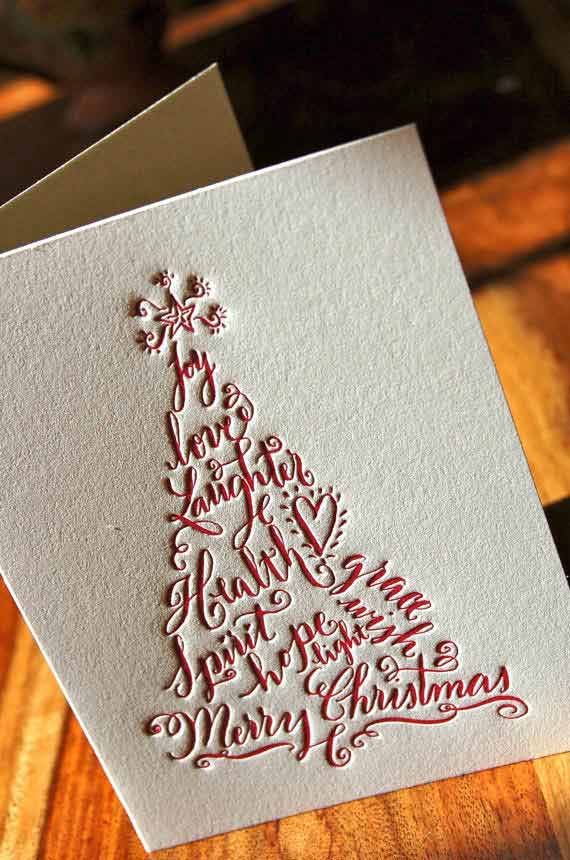 Joy
love
Laughter
Health grace
Spirit hope light wish
Merry Christmas